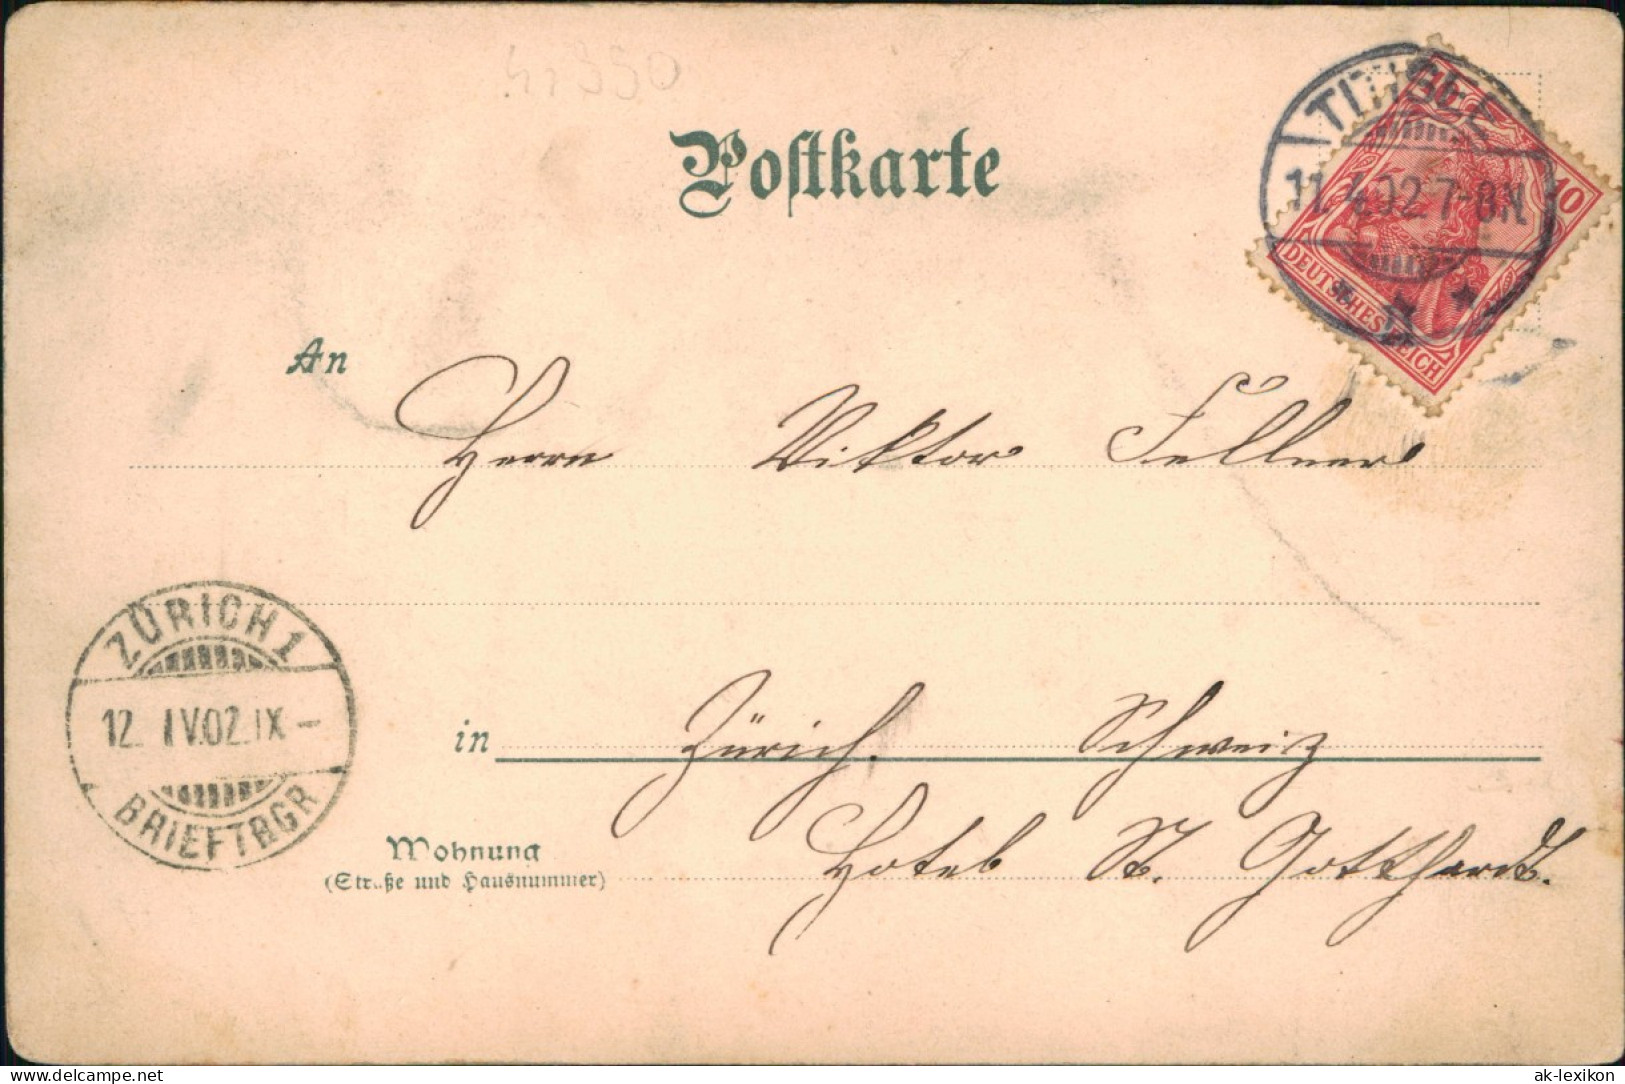 41350
Postkarte
11.4.02.7-8N.
10
DEUTSCHES REICH
An
Herrn Viktor Fellner
ZÜRICH 1
12. IV.02.IX -
BRIEFTRGR
in Zürich. Schweiz
Wohnung
(Straße und Hausnummer)
Hotel St. Gotthardt.
www.delcampe.net
ak-lexikon